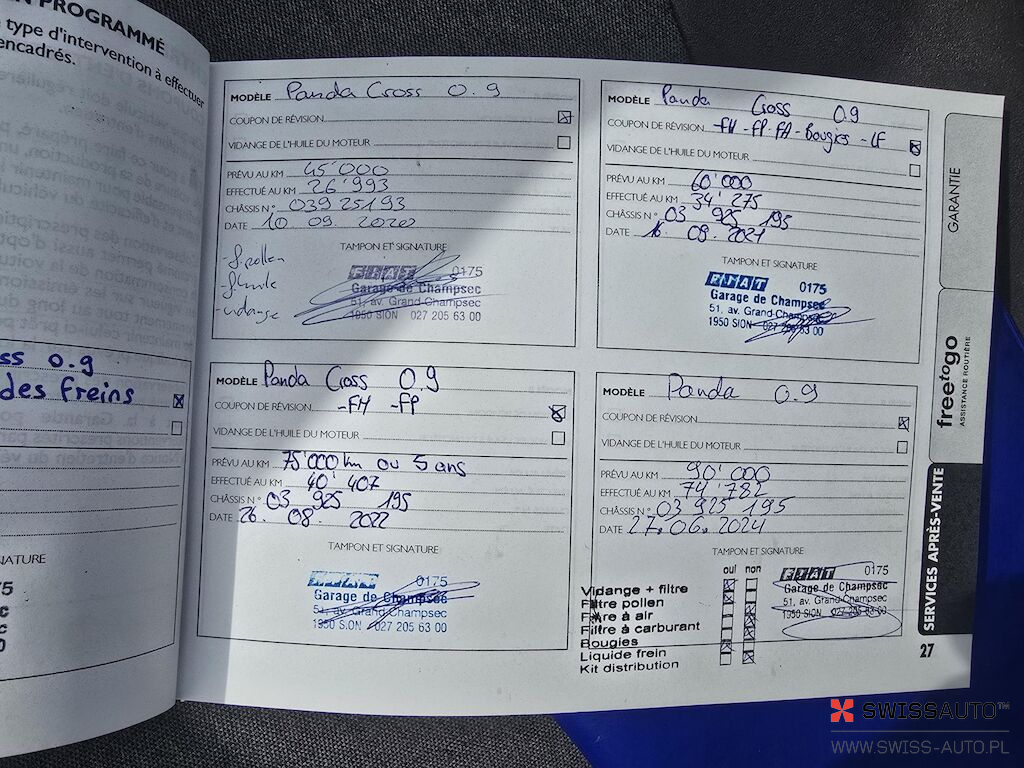 N PROGRAMMÉ
type d'intervention à effectuer
encadrés.
ss 0.9
des freins
NATURE
MODÈLE Panda Cross 0.9
COUPON DE RÉVISION
VIDANGE DE L'HUILE DU MOTEUR
PRÉVU AU KM 45'000
EFFECTUÉ AU KM 26'993
CHÂSSIS N° 03925193
DATE 10.09.2020
TAMPON ET SIGNATURE
-f.pollen
-f.huile
-vidange
FIAT 0175
Garage de Champsec
51, av. Grand-Champsec
1950 SION 027 205 63 00
MODÈLE Panda Cross 0.9
COUPON DE RÉVISION -FH-FP-FA-Bougies-LF
VIDANGE DE L'HUILE DU MOTEUR
PRÉVU AU KM 60'000
EFFECTUÉ AU KM 34'275
CHÂSSIS N° 03 925 195
DATE 16.09.2021
TAMPON ET SIGNATURE
FIAT 0175
Garage de Champsec
51, av. Grand-Champsec
1950 SION 027 205 63 00
MODÈLE Panda Cross 0.9
COUPON DE RÉVISION -FH -FP
VIDANGE DE L'HUILE DU MOTEUR
PRÉVU AU KM 75'000km ou 5 ans
EFFECTUÉ AU KM 40'407
CHÂSSIS N° 03 925 195
DATE 26.08.2022
TAMPON ET SIGNATURE
FIAT 0175
Garage de Champsec
51, av. Grand-Champsec
1950 SION 027 205 63 00
MODÈLE Panda 0.9
COUPON DE RÉVISION
VIDANGE DE L'HUILE DU MOTEUR
PRÉVU AU KM 90'000
EFFECTUÉ AU KM 74'782
CHÂSSIS N° 03 925 195
DATE 27.06.2024
TAMPON ET SIGNATURE
oui non
Vidange + filtre
Filtre pollen
Filtre à air
Filtre à carburant
Bougies
Liquide frein
Kit distribution
FIAT 0175
Garage de Champsec
51, av. Grand-Champsec
1950 SION 027 205 63 00
GARANTIE
freetogo
ASSISTANCE ROUTIÈRE
SERVICES APRÈS-VENTE
27
SWISSAUTO™
WWW.SWISS-AUTO.PL